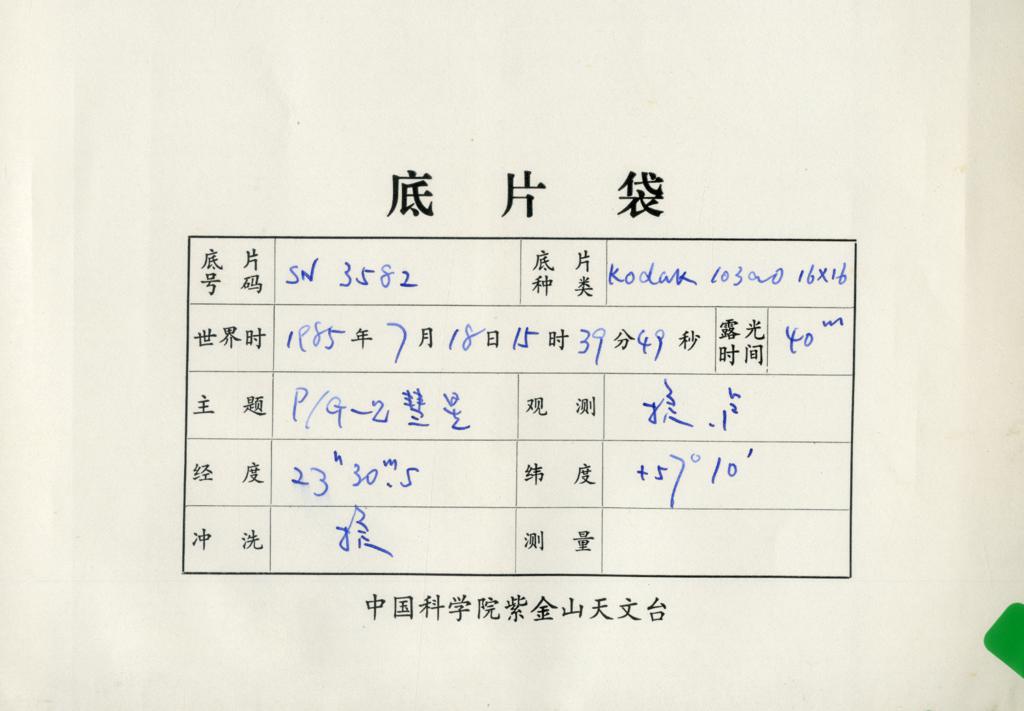 底片袋
底片号码 SN 3582 底片种类 Kodak 103aO 16×16
世界时 1985年7月18日15时39分49秒 露光时间 40m
主题 P/G-Z 彗星 观测
经度 23h 30m.5 纬度 +57° 10′
冲洗 测量
中国科学院紫金山天文台